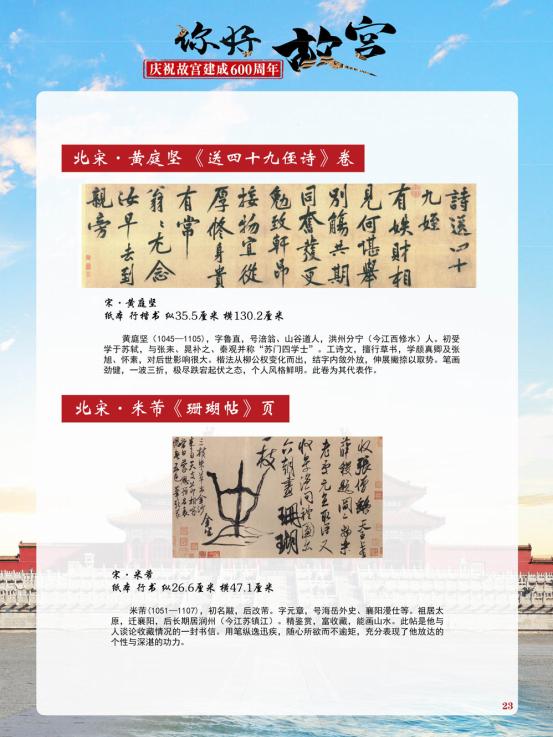 你好 故宫
庆祝故宫建成600周年
北宋·黄庭坚《送四十九侄诗》卷
詩送四十
九姪
有娛財相
見何堪舉
別觴共期
同奮發更
勉致軒昂
接物宜從
厚修身貴
有常
翁〻尤念
汝早去到
親旁
宋·黄庭坚
纸本 行楷书 纵35.5厘米 横130.2厘米
黄庭坚（1045—1105），字鲁直，号涪翁、山谷道人，洪州分宁（今江西修水）人。初受
学于苏轼，与张耒、晁补之、秦观并称“苏门四学士”。工诗文，擅行草书，学颜真卿及张
旭、怀素，对后世影响很大。楷法从柳公权变化而出，结字内敛外放，伸展撇捺以取势。笔画
劲健，一波三折，极尽跌宕起伏之态，个人风格鲜明。此卷为其代表作。
北宋·米芾《珊瑚帖》页
收張僧繇天王
收景溫問禮圖亦
六朝畫珊瑚
一枝
金坐
三枝朱草出金沙
宋·米芾
纸本 行书 纵26.6厘米 横47.1厘米
米芾(1051—1107)，初名黻，后改芾。字元章，号海岳外史、襄阳漫仕等。祖居太
原，迁襄阳，后长期居润州（今江苏镇江）。精鉴赏，富收藏，能画山水。此帖是他与
人谈论收藏情况的一封书信。用笔纵逸迅疾，随心所欲而不逾矩，充分表现了他放达的
个性与深湛的功力。
23